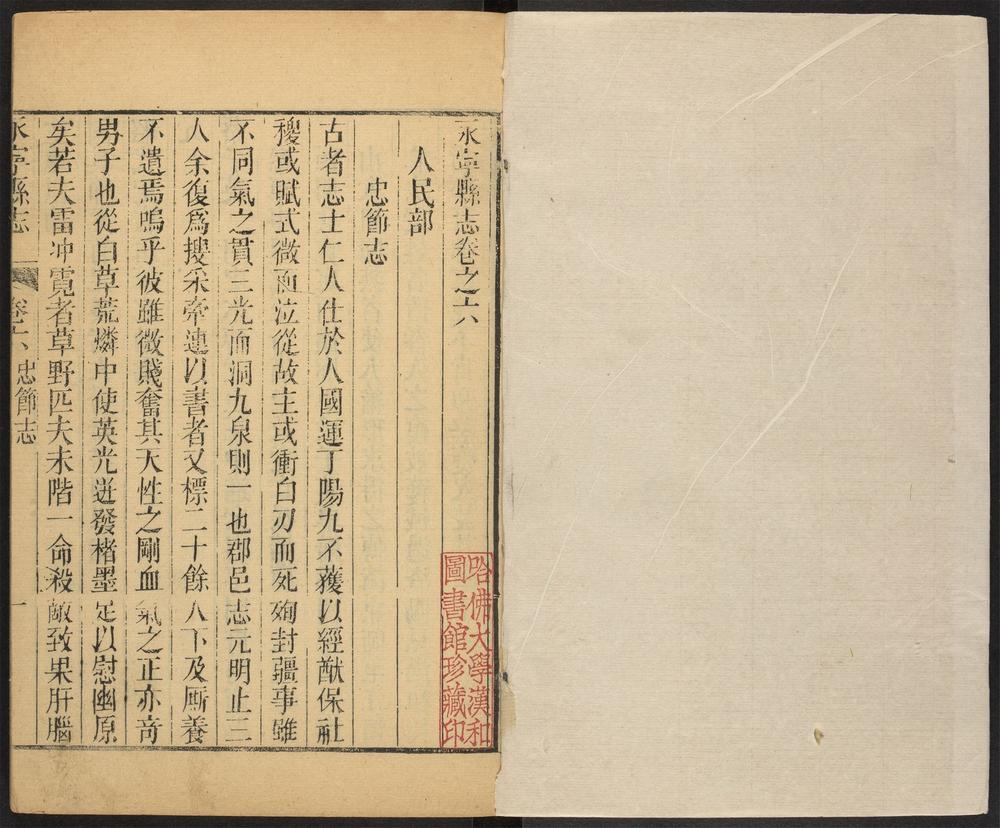 永寧縣志卷之六
人民部
忠節志
古者志士仁人仕於人國運丁陽九不獲以經猷保社
稷或賦式微而泣從故主或衝白刃而死殉封疆事雖
不同氣之貫三光而洞九泉則一也郡邑志元明止三
人余復爲搜采牽連以書者又標二十餘人下及厮養
不遺焉嗚乎彼雖微賤奮其天性之剛血氣之正亦奇
男子也從白草荒燐中使英光迸發楮墨足以慰幽原
矣若夫雷冲霓者草野匹夫未階一命殺敵致果肝腦
永寧縣志 卷六 忠節志 一
哈佛大學漢和
圖書館珍藏印